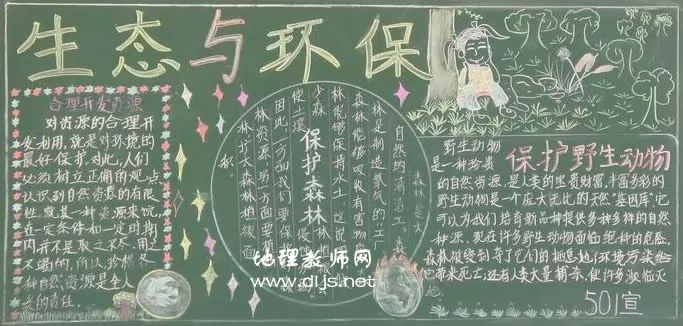 生态与环保
合理开发资源
对资源的合理开
发利用,就是对环境的
最好保护。对此,人们
必须树立正确的观点
认识到自然资源的有限
性。就某一种资源来说,
在一定条件和一定时期
内并不是取之不尽、用之
不竭的,所以珍惜各
种自然资源是全人
类的责任。
保护森林
森林是大
自然的清洁工。森
林是制造氧气的工厂
森林能够吸收有害物
林能够保持水土,这说
少森林
使环境
因此,一方面我们要保
林资源,另一方面要
林扩大森林植被面
积.
保护野生动物
野生动物
是一种珍贵
的自然资源,是人类的宝贵财富,丰富多彩的
野生动物是一个庞大无比的天然"基因库",它
可以为我们培育新品种提供多种多样的自然
种源,现在许多野生动物面临绝种的危险,
森林被砍夺了它们的栖息地,环境污染给
它带来死亡;还有人类大量捕杀,使许多濒临灭
绝.
501宣
地理教师网
www.dljs.net